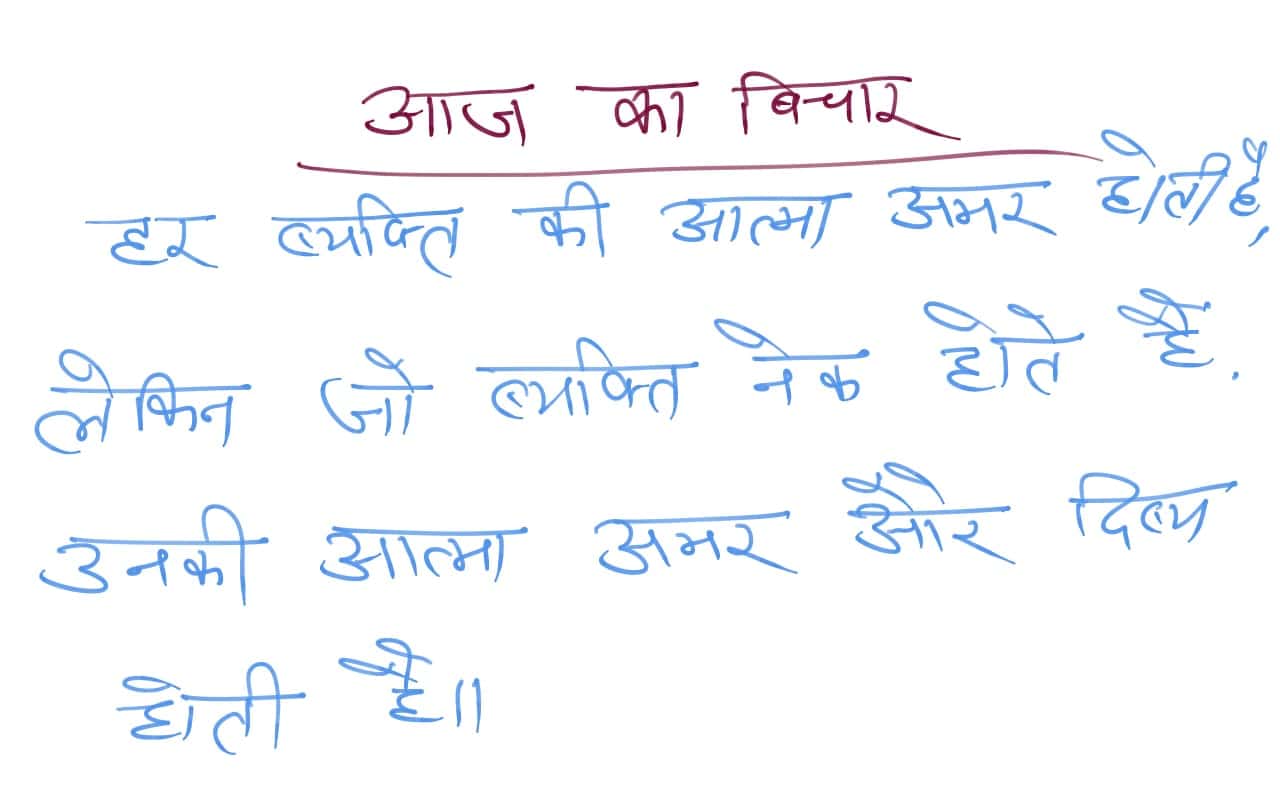 आज का विचार
हर व्यक्ति की आत्मा अमर होती है,
लेकिन जो व्यक्ति नेक होते हैं.
उनकी आत्मा अमर और दिव्य
होती है॥